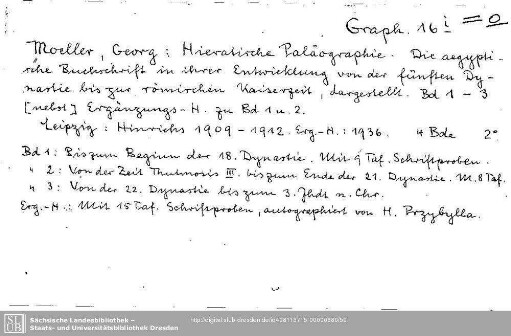 Graph. 16 i = 0
Moeller, Georg: Hieratische Paläographie. Die aegypti-
sche Buchschrift in ihrer Entwicklung von der fünften Dy-
nastie bis zur römischen Kaiserzeit, dargestellt. Bd 1 - 3
[nebst] Ergänzungs-H. zu Bd 1 u. 2.
Leipzig: Hinrichs 1909 - 1912. Erg.-H.: 1936. 4 Bde 2°
Bd 1: Bis zum Beginn der 18. Dynastie. Mit 9 Taf. Schriftproben.
" 2: Von der Zeit Thutmosis III. bis zum Ende der 21. Dynastie. M. 8 Taf.
" 3: Von der 22. Dynastie bis zum 3. Jhdt n. Chr.
Erg.-H.: Mit 15 Taf. Schriftproben, autographiert von H. Przybylla.
SLUB Sächsische Landesbibliothek –
Staats- und Universitätsbibliothek Dresden